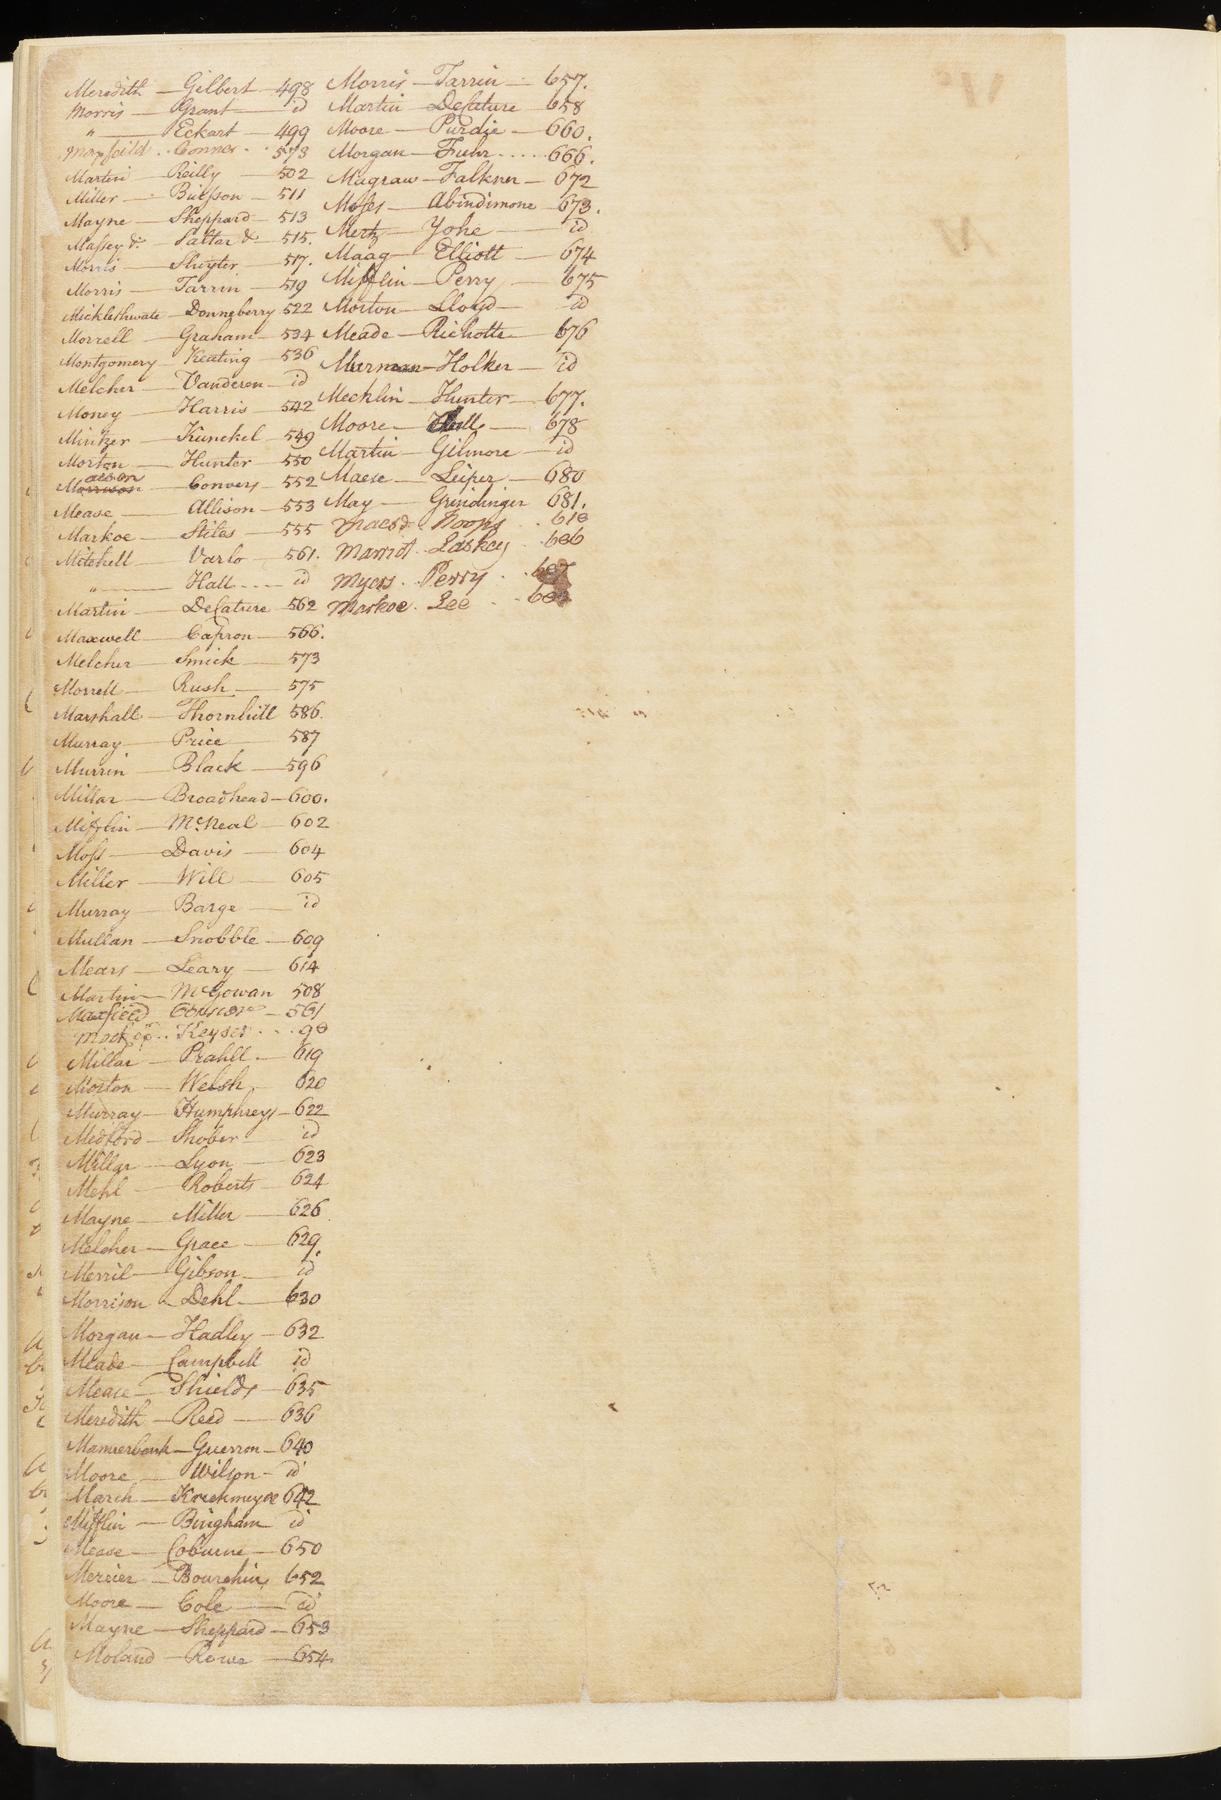 Meredith — Gilbert — 498
Morris — Grant — id
" — Eckart — 499
Maxfeild . . Conner . . 573
Martin — Reilly — 502
Miller — Busson — 511
Mayne — Sheppard — 513
Massey &c — Pattar &c — 515.
Morris — Shuyter — 517.
Morris — Tarrin — 519
Micklethwate — Donneberry 522
Morrell — Graham — 534
Montgomery — Keating — 536
Melcher — Vanderen — id
Money — Harris — 542
Mintzer — Kunckel — 549
Morton — Hunter — 550
Morrison — Convers — 552
Mease — Allison — 553
Markoe — Stiles — 555
Mitchell — Varlo — 561.
" — Hall — id
Martin — Delature — 562
Maxwell — Capron — 566.
Melcher — Smick — 573
Morrell — Rush — 575
Marshall — Thornhill 586.
Murray — Price — 587
Murrin — Black — 596
Millar — Broadhead — 600.
Mifflin — McNeal — 602
Moss — Davis — 604
Miller — Will — 605
Murray — Barge — id
Mullan — Snobble — 609
Mears — Leary — 614
Martin — McGowan 508
Maxfield — 561
Keyser . . . 98
Millar — Prahll — 619
Morton — Welsh — 620
Murray — Humphreys — 622
Medford — Shober — id
Millar — Lyon — 623
Mehl — Roberts — 624
Mayne — Miller — 626
Melcher — Grace — 629.
Merril — Gibson — id
Morrison — Dehl — 630
Morgan — Hadley — 632
Meade — Campbell id
Mease — Shields — 635
Meredith — Reed — 636
Guerron — 640
Moore — Wilson — id
March — 642
Mifflin — Bingham — id
Mease — Coburne — 650
Mercier — 652
Moore — Cole — id
Mayne — Sheppard — 653
Moland — Rowe — 654
Morris — Tarrin — 657.
Martin — Delature 658
Moore — Purdie — 660.
Morgan — Fuhr . . . . . 666.
Magraw — Falkner — 672
Moses — Abindimone — 673.
Mertz — Yohe — id
Maag — Elliott — 674
Mifflin — Perry — 675
Morton — Lloyd — id
Meade — Richotte — 676
Murman — Holker — id
Mechlin — Hunter — 677.
Moore — 678
Martin — Gilmore — id
Maese — Leiper — 680
May — Grindinger 681.
Hoops . . 618
Marriot . . Laskey . . 686
Myers . . Perry . . 687
Markoe . Lee . .